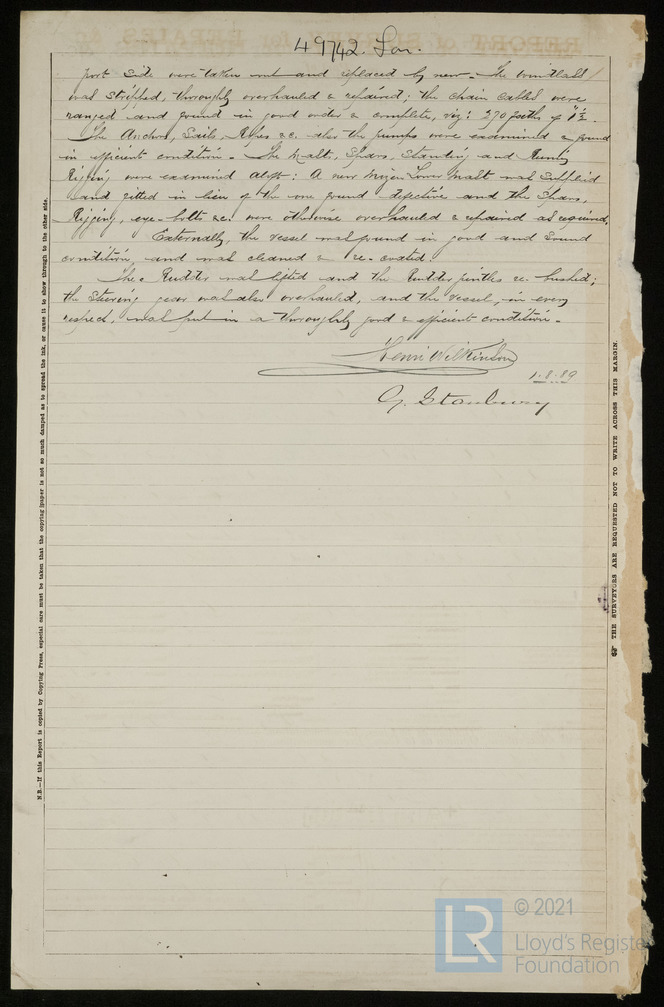 49742. Lon.
port side were taken out and replaced by new. The windlass
was stripped, thoroughly overhauled & repaired; the chain cables were
ranged and found in good order & complete, viz: 270 faths of 1
The Anchors, Sails, Ropes &c. also the pumps were examined & found
in efficient condition. The Masts, Spars, Standing and Running
Rigging were examined aloft: A new Mizen Lower Mast was supplied
and fitted in lieu of the one found defective and the Spars,
Rigging, eye-bolts &c. were otherwise overhauled & repaired as required.
Externally, the vessel was found in good and sound
condition, and was cleaned & re-coated.
The Rudder was lifted and the Rudder pintles re-bushed;
the Steering gear was also overhauled, and the vessel, in every
respect, was put in a thoroughly good & efficient condition.
Henri Wilkinson
1.8.89
G. Stanbury
N.B.—If this Report is copied by Copying Press, especial care must be taken that the copying paper is not so much damped as to spread the ink, or cause it to show through to the other side.
THE SURVEYORS ARE REQUESTED NOT TO WRITE ACROSS THIS MARGIN.
LR
© 2021
Lloyd's Register
Foundation